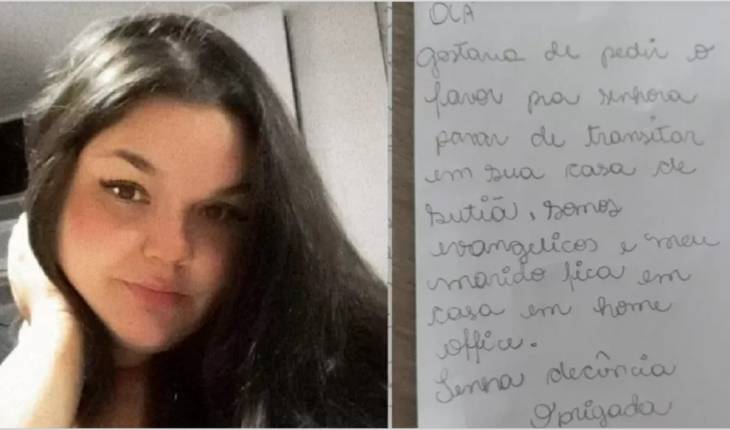 OLA
Gostaria de pedir o
favor pra senhora
parar de transitar
em sua casa de
sutiã, somos
evangelicos e meu
marido fica em
casa em home
office.
Tenha decência
Obrigada